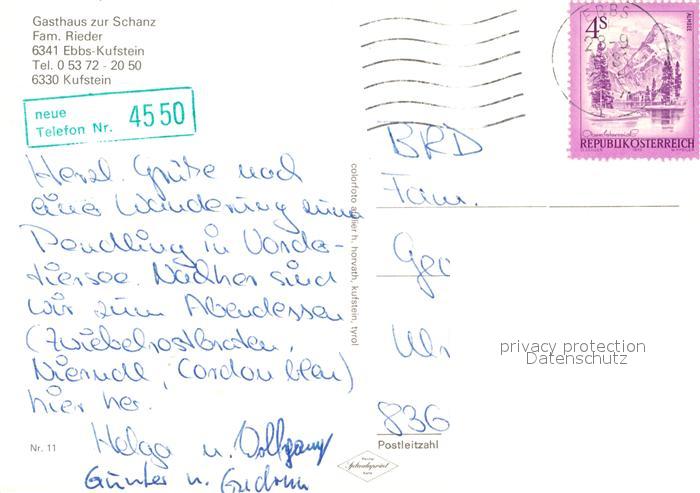 Gasthaus zur Schanz
Fam. Rieder
6341 Ebbs-Kufstein
Tel. 0 53 72 - 20 50
6330 Kufstein
neue
Telefon Nr. 45 50
Herzl. Grüße nach
eine Wanderung zum
Pendling in Vorder-
tiersee. Nachher sind
wir zum Abendessen
(Zwiebelrostbraten,
Nierndl, Cordon bleu)
hier her.
Helga u. Wolfgang
Günter u.
Nr. 11
colorfoto atelier h. horvath, kufstein, tyrol
EBBS
4S
ALMSEE
REPUBLIK ÖSTERREICH
BRD
Fam.
836
Postleitzahl
privacy protection
Datenschutz